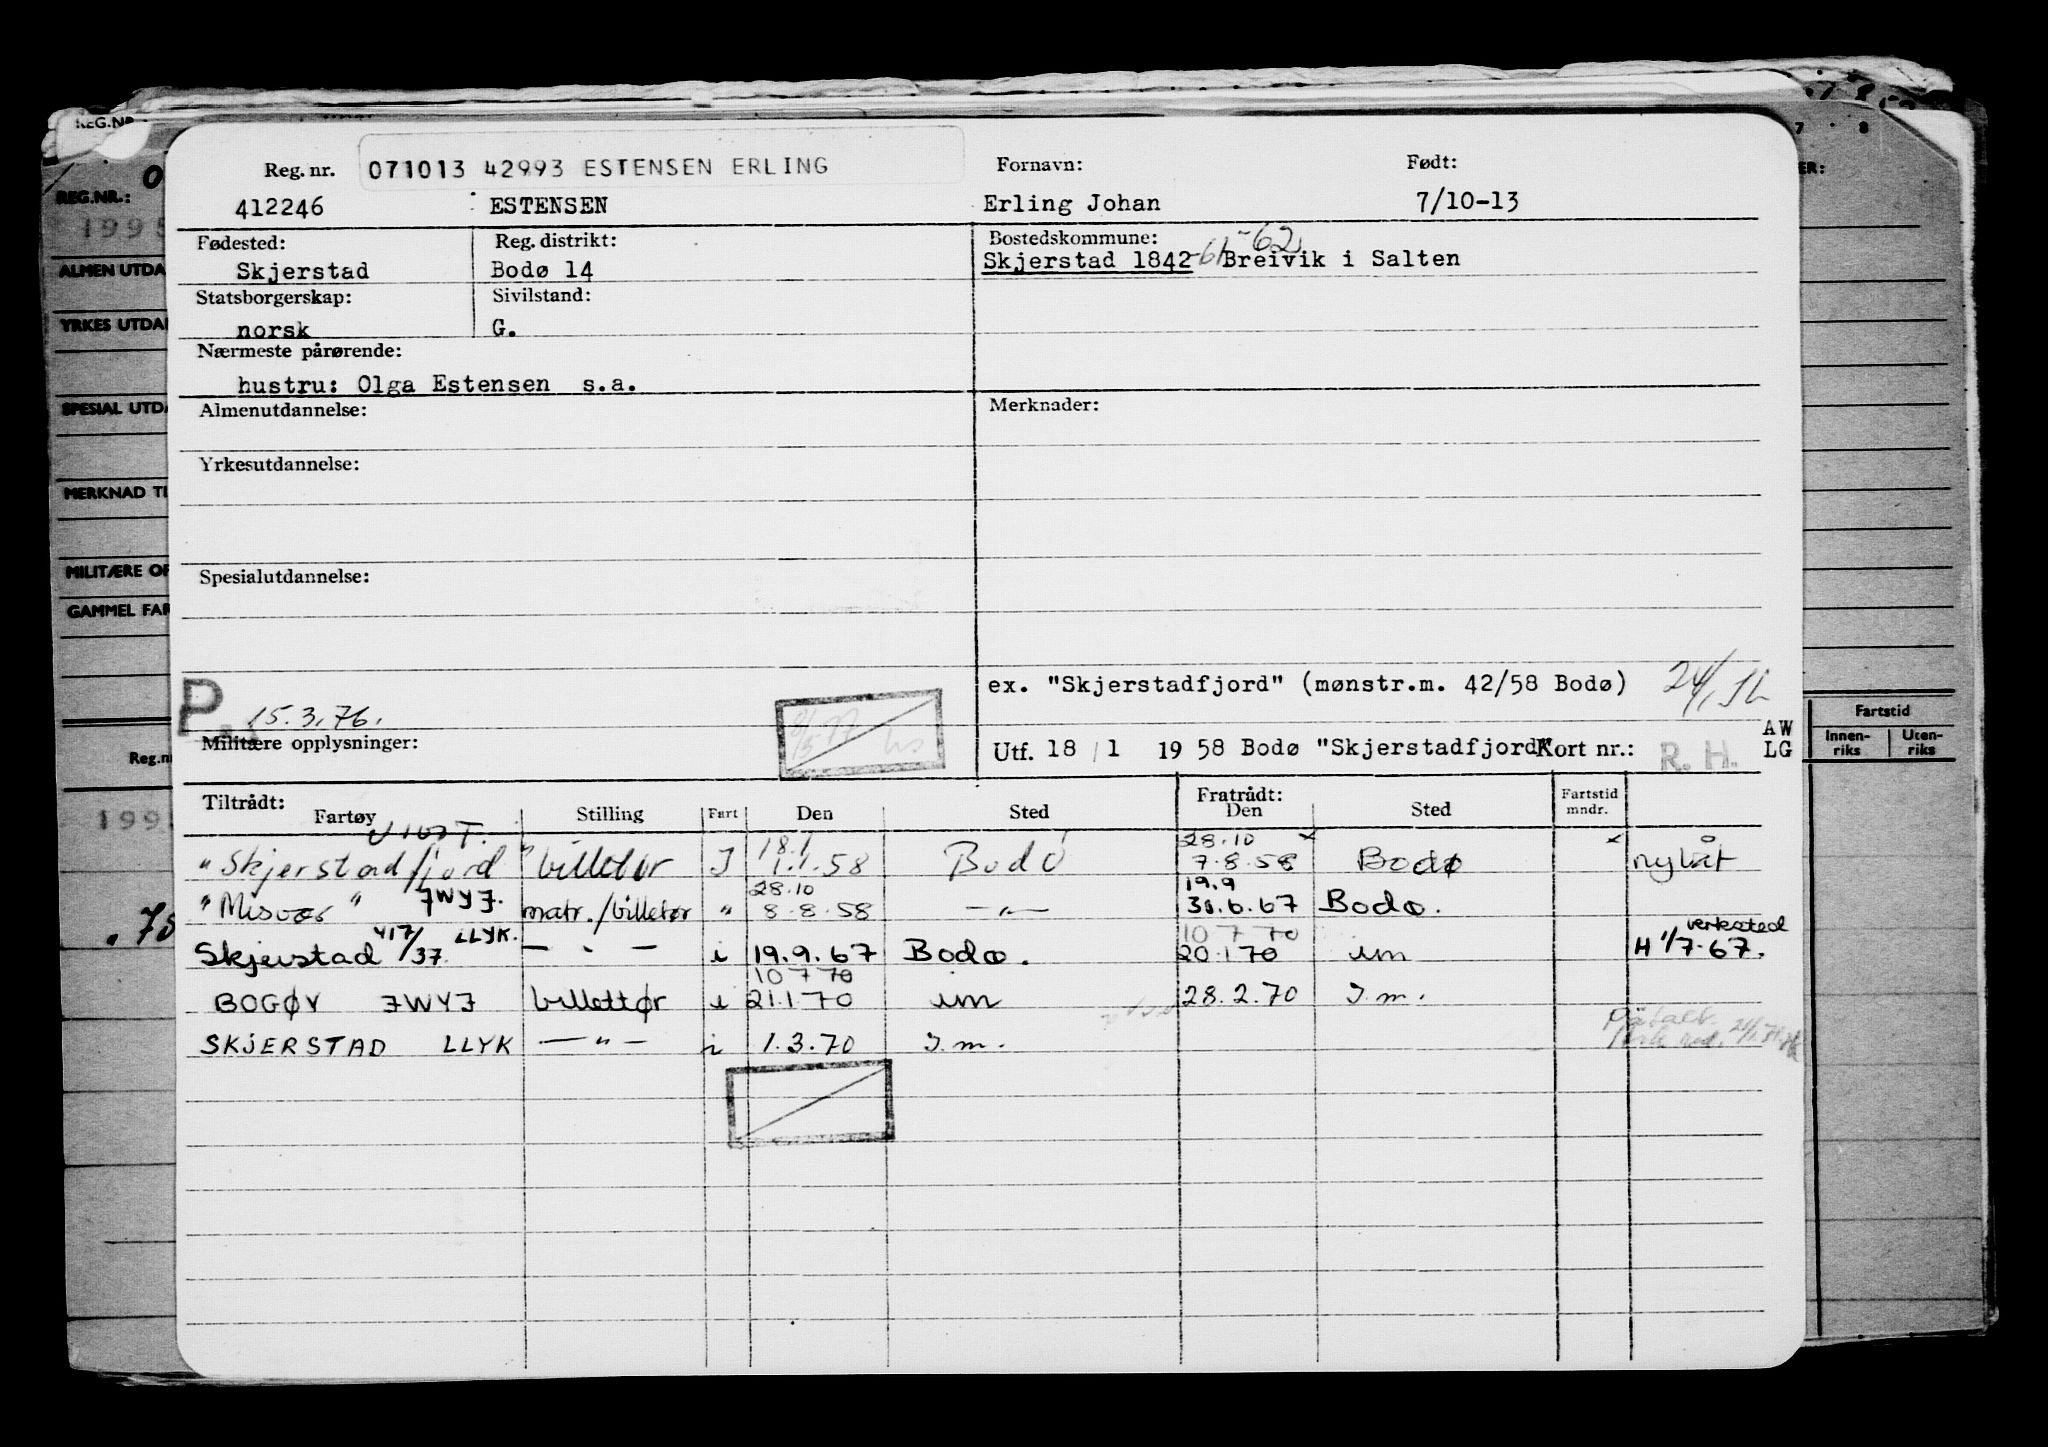 REG.NR.
7 8
Reg. nr. 071013 42993 ESTENSEN ERLING Fornavn: Født:
REG.NR.: 0 ER:
1995 412246 ESTENSEN Erling Johan 7/10-13
Fødested: Reg. distrikt: Bostedskommune: -62
ALMEN UTDA Skjerstad Bodø 14 Skjerstad 1842 -61 Breivik i Salten
Statsborgerskap: Sivilstand:
YRKES UTDA norsk G.
Nærmeste pårørende:
hustru: Olga Estensen s.a.
SPESIAL UTDA Almenutdannelse: Merknader:
Yrkesutdannelse:
MERKNAD TI
MILITÆRE OP Spesialutdannelse:
GAMMEL FAR
ex. "Skjerstadfjord" (mønstr.m. 42/58 Bodø)
P. 15.3.76. Fartstid
Militære opplysninger: Utf. 18 / 1 19 58 Bodø "Skjerstadfjord" Kort nr.: R. H. AW LG Innen-riks Uten-riks
Reg.nr
Tiltrådt: Fratrådt:
Fartøy Stilling Fart Den Sted Den Sted Fartstid mndr.
18.1 28.10 x x Å
"Skjerstadfjord" billetør I 1.1.58 Bodø 7.8.58 Bodø nylåt
28.10 19.9
"Misvær" JWYJ. matr./billetør " 8.8.58 —"— 30.6.67 Bodø.
417/37 LLYK. 10 7 70 verksted
.75 Skjerstad — " — i 19.9.67 Bodø. 20.1 70 im H 1/7-67.
10 7 70
BOGØY JWYJ billettør i 21.1.70 im 28.2.70 I.m.
SKJERSTAD LLYK —"— i 1.3.70 I.m.